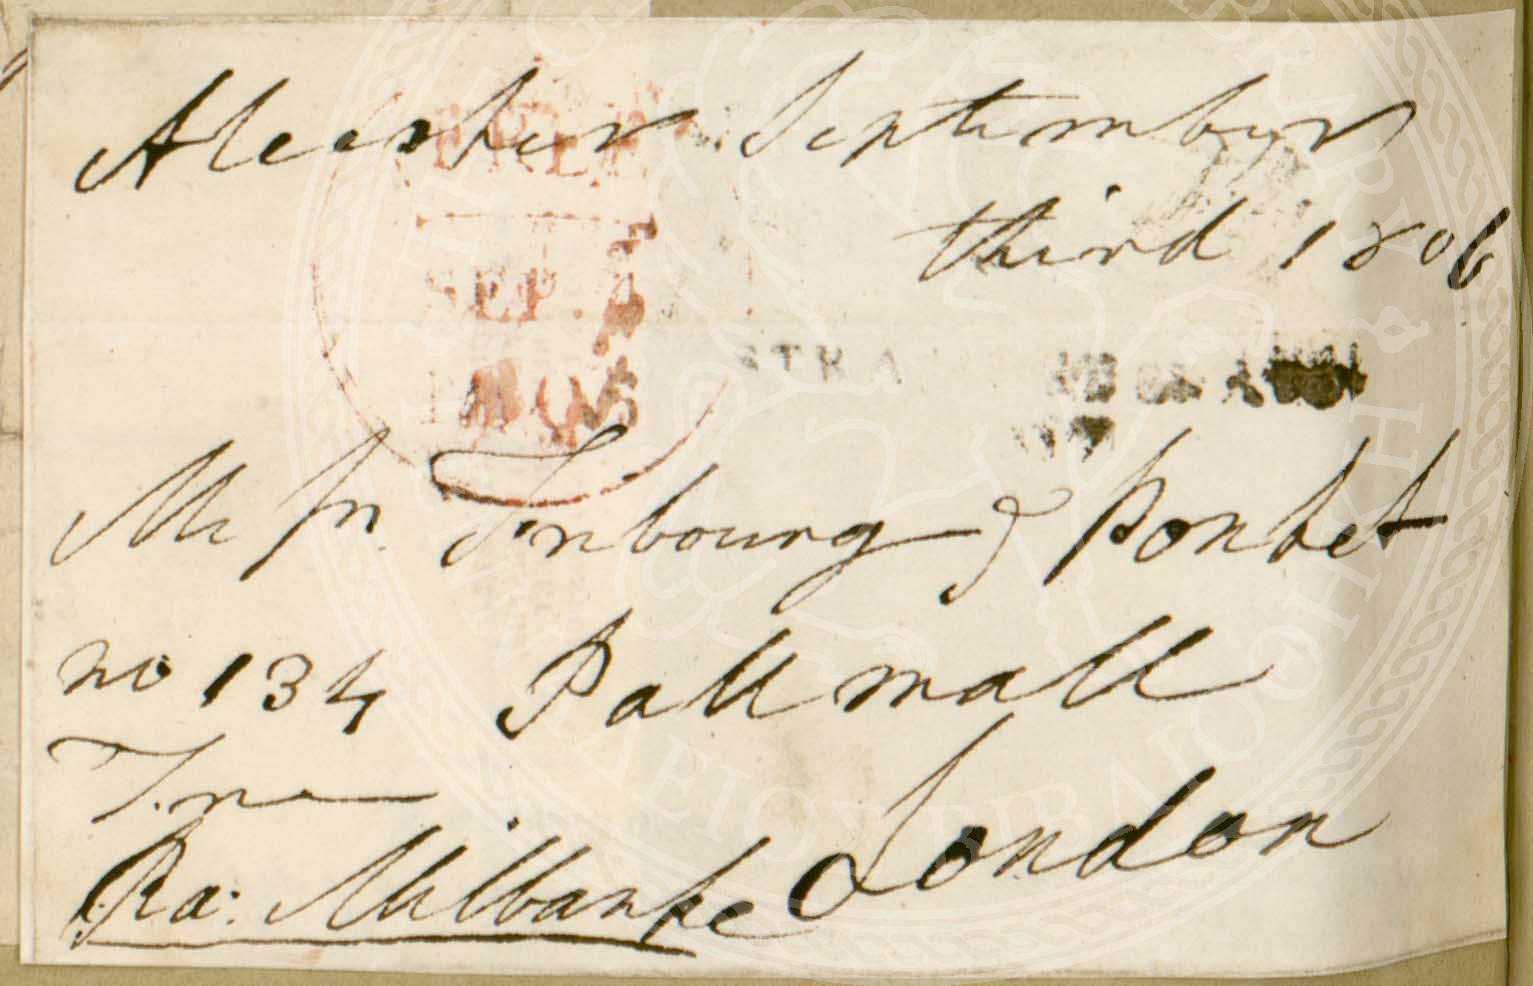 Alcester September
third 1806
FREE
SEP. 4
1806
STRA
Messrs. Fribourg & Pontet
no 134 Pall mall
London
Free
Ra: Milbanke